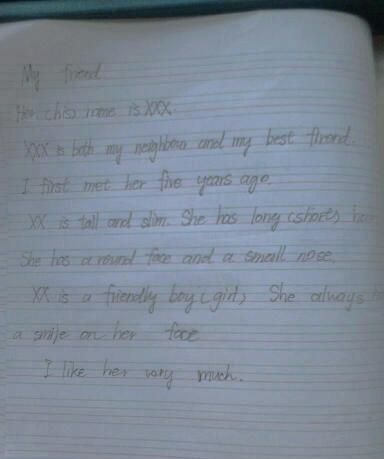 My friend
Her (his) name is XXX.
XXX is both my neighbour and my best friend.
I first met her five years ago.
XX is tall and slim. She has long (short) hair
She has a round face and a small nose.
XX is a friendly boy (girl) She always
a smile on her face
I like her very much.